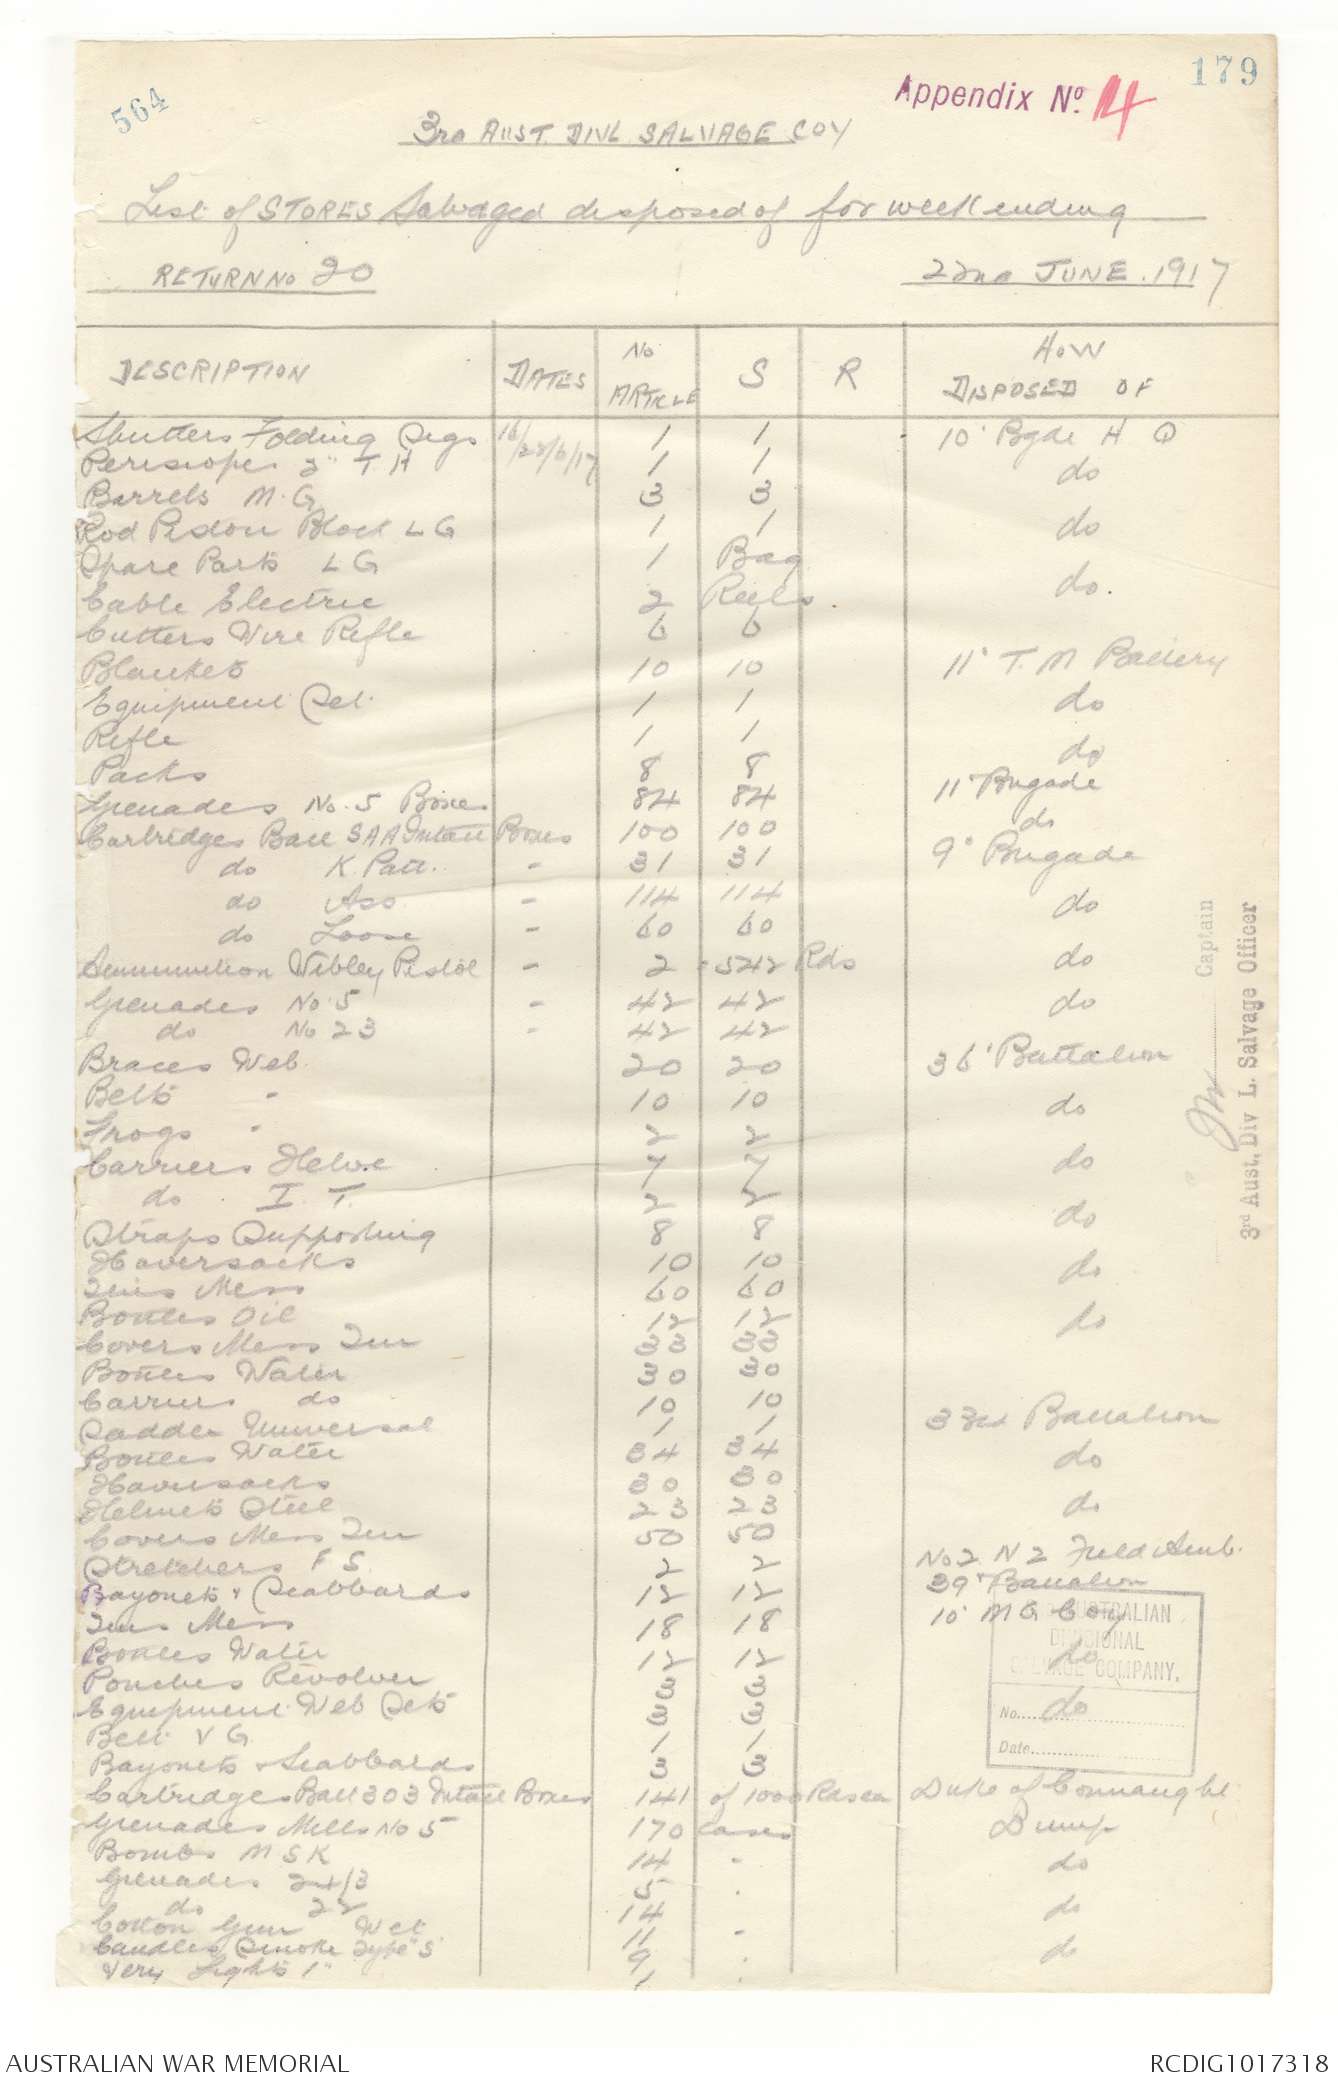 564
179
Appendix No. 14
3RD AUST. DIVL SALVAGE COY
List of STORES Salvaged disposed of for week ending
RETURN No 20 22nd JUNE. 1917
DESCRIPTION DATES No ARTICLE S R HOW DISPOSED OF
Shutters Folding Sigs 16/22/6/17 1 1 10' Bgde H Q
Periscopes 2" T H 1 1 do
Barrels M.G 3 3
Rod Piston Block L G 1 1 do
Spare Parts L G 1 Bag
Cable Electric 2 Reels do.
Cutters Wire Rifle 6 6
Blankets 10 10 11' T. M Battery
Equipment Set. 1 1 do
Rifle 1 1 do
Packs 8 8
Grenades No. 5 Boxes 84 84 11' Brigade
Cartridges Ball SAA Intact Boxes 100 100 do
do K. Patt. - 31 31 9' Brigade
do Ass - 114 114 do
do Loose - 60 60
Ammunition Webley Pistol - 2 542 Rds do
Grenades No. 5 - 42 42 do
do No 23 - 42 42
Braces Web 20 20 36' Battalion
Belts - 10 10 do
Frogs - 2 2
Carriers Helve 7 7 do
do I. T. 2 2
Straps Supporting 8 8 do
Haversacks 10 10 do
Tins Mess 60 60
Bottles Oil 12 12 do
Covers Mess Tin 33 33
Bottles Water 30 30
Carriers do 10 10
Saddle Universal 1 1 33rd Battalion
Bottles Water 34 34 do
Haversacks 30 30
Helmets Steel 23 23 do
Covers Mess Tin 50 50
Stretchers F S. 2 2 No 2 N Z Field Amb.
Bayonets & Scabbards 12 12 39' Battalion
Tins Mess 18 18 10' M G Coy
Bottles Water 12 12 do
Pouches Revolver 3 3
Equipment Web Sets 3 3 do
Belt V G 1 1
Bayonets & Scabbards 3 3
Cartridges Ball 303 Intact Boxes 141 of 1000 Rds ea Duke of Connaught
Grenades Mills No 5 170 Cases Dump
Bombs M S K 14 - do
Grenades 24/3 5 .
do 22 14 do
Cotton Gun Wet 11 -
Candles Smoke Type "S 9 . do
Very Lights 1" 1 .
Captain
3rd Aust, Div L. Salvage Officer
AUSTRALIAN
DIVISIONAL
SALVAGE COMPANY.
No.
Date
AUSTRALIAN WAR MEMORIAL
RCDIG1017318